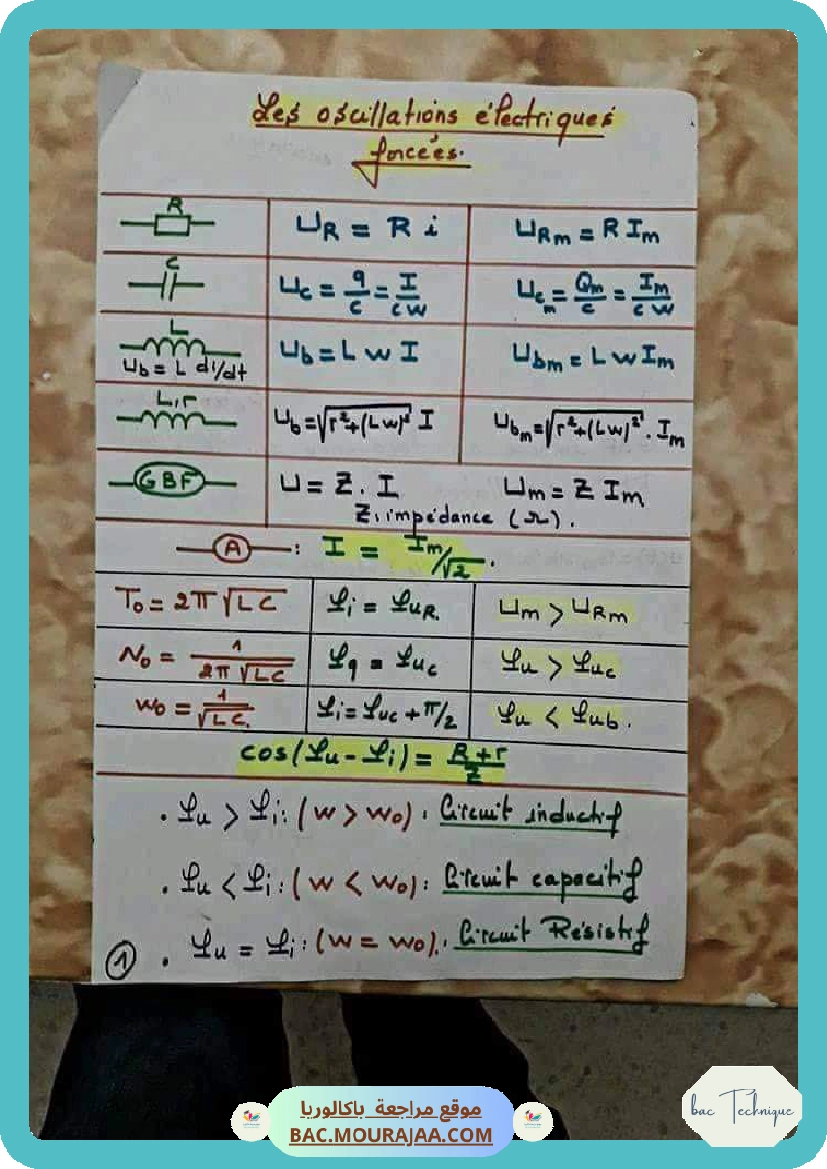 Les oscillations électriques
forcées.
R
U_R = R i
U_Rm = R I_m
C
U_c = q/c = I/cw
U_cm = Q_m/c = I_m/cw
L
U_b = L di/dt
U_b = L w I
U_bm = L w I_m
L,r
U_b = √(r²+(Lw)²) I
U_bm = √(r²+(Lw)²) . I_m
GBF
U = Z . I
U_m = Z I_m
Z : impédance (Ω).
A : I = I_m/√2 .
T₀ = 2π √LC
φ_i = φ_uR
U_m > U_Rm
N₀ = 1/2π √LC
φ_q = φ_uc
φ_u > φ_uc
w₀ = 1/√LC.
φ_i = φ_uc + π/2
φ_u < φ_ub .
cos(φ_u - φ_i) = R+r/Z
. φ_u > φ_i : (w > w₀) : Circuit inductif
. φ_u < φ_i : (w < w₀) : Circuit capacitif
. φ_u = φ_i : (w = w₀). Circuit Résistif
1
موقع مراجعة باكالوريا
BAC.MOURAJAA.COM
bac Technique